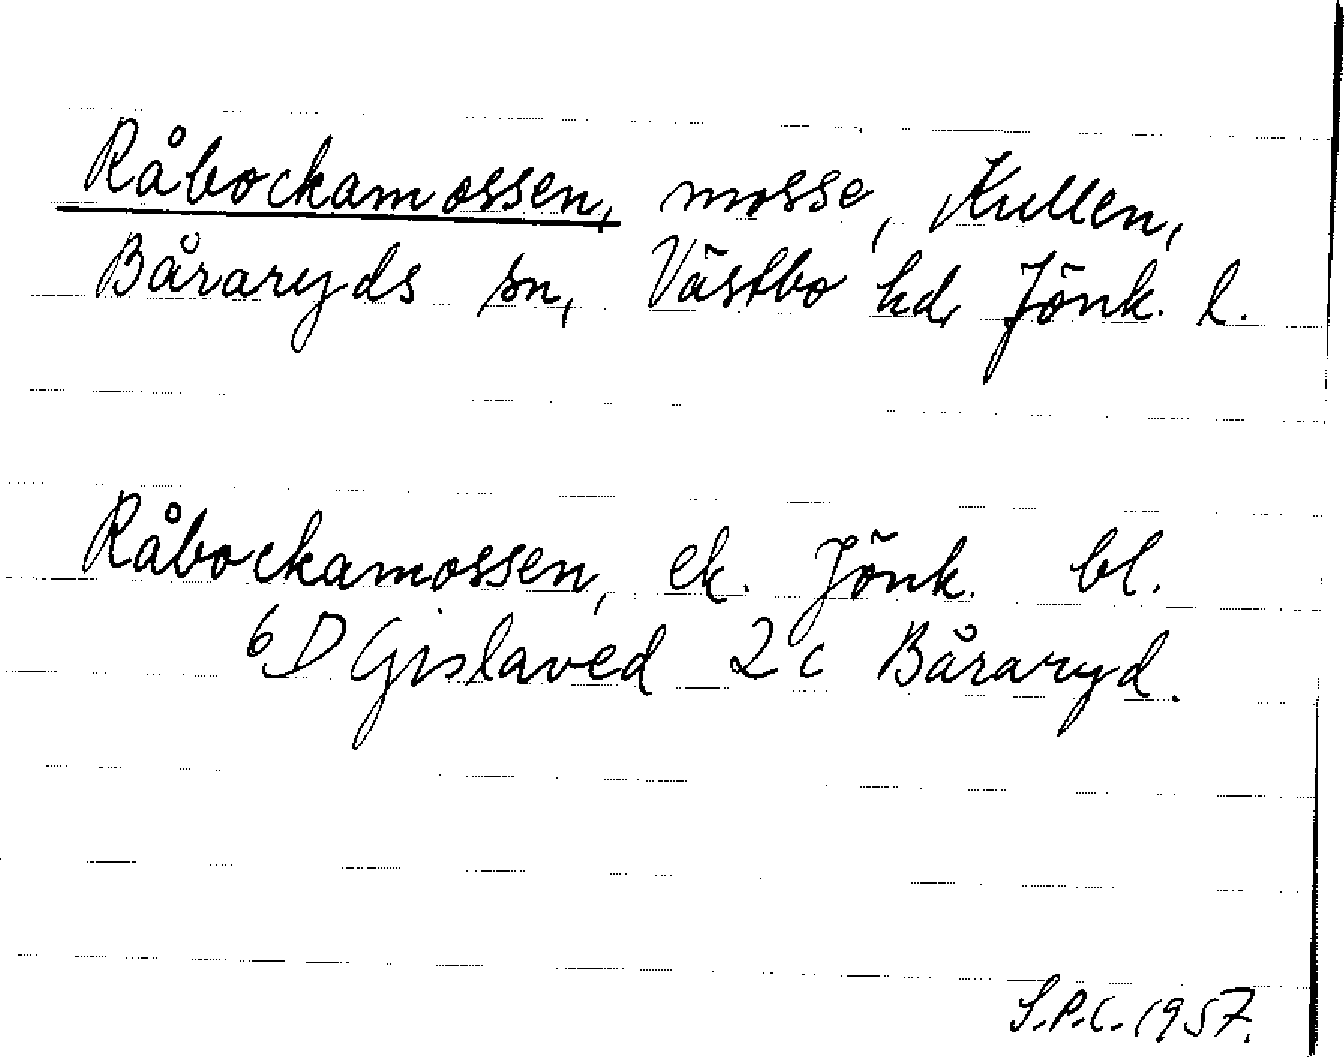 Råbockamossen, mosse, Kullen,
Båraryds sn, Västbo hd, Jönk. l.
Råbockamossen, ek. Jönk. bl.
6D Gislaved 2c Båraryd.
S.P.C. 1957.